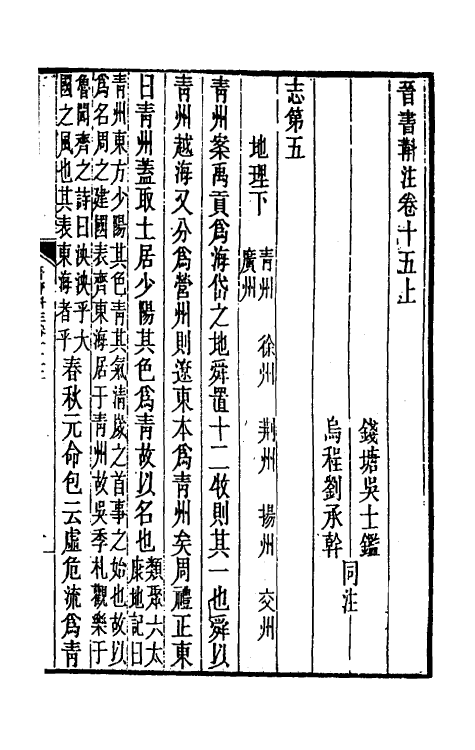 晉書斠注卷十五上
錢塘吳士鑑
烏程劉承幹
同注
志第五
地理下
青州 徐州 荊州 揚州 交州
廣州
青州案禹貢爲海岱之地舜置十二牧則其一也舜以
青州越海又分爲營州則遼東本爲青州矣周禮正東
曰青州蓋取土居少陽其色爲青故以名也
類聚六太
康地記曰
青州東方少陽其色青其氣清歲之首事之始也故以
爲名周之建國表齊東海居于青州故吳季札觀樂于
魯聞齊之詩曰泱泱乎大
國之風也其表東海者乎
春秋元命包云虛危流爲青